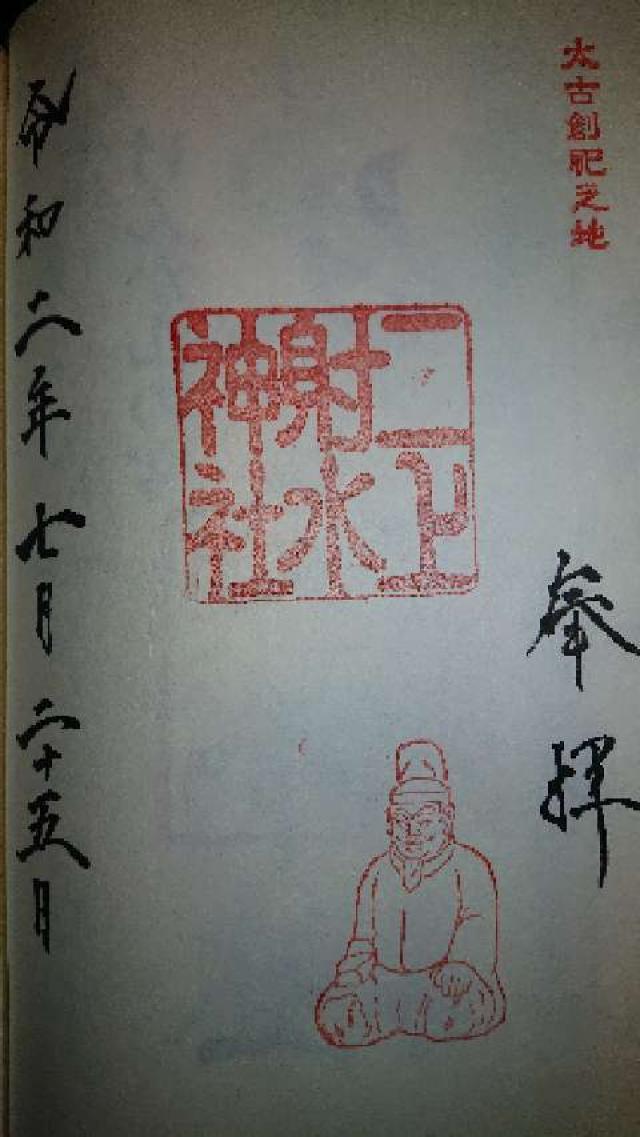 太古創祀之地
奉拝
二上
射水
神社
令和二年七月二十五日